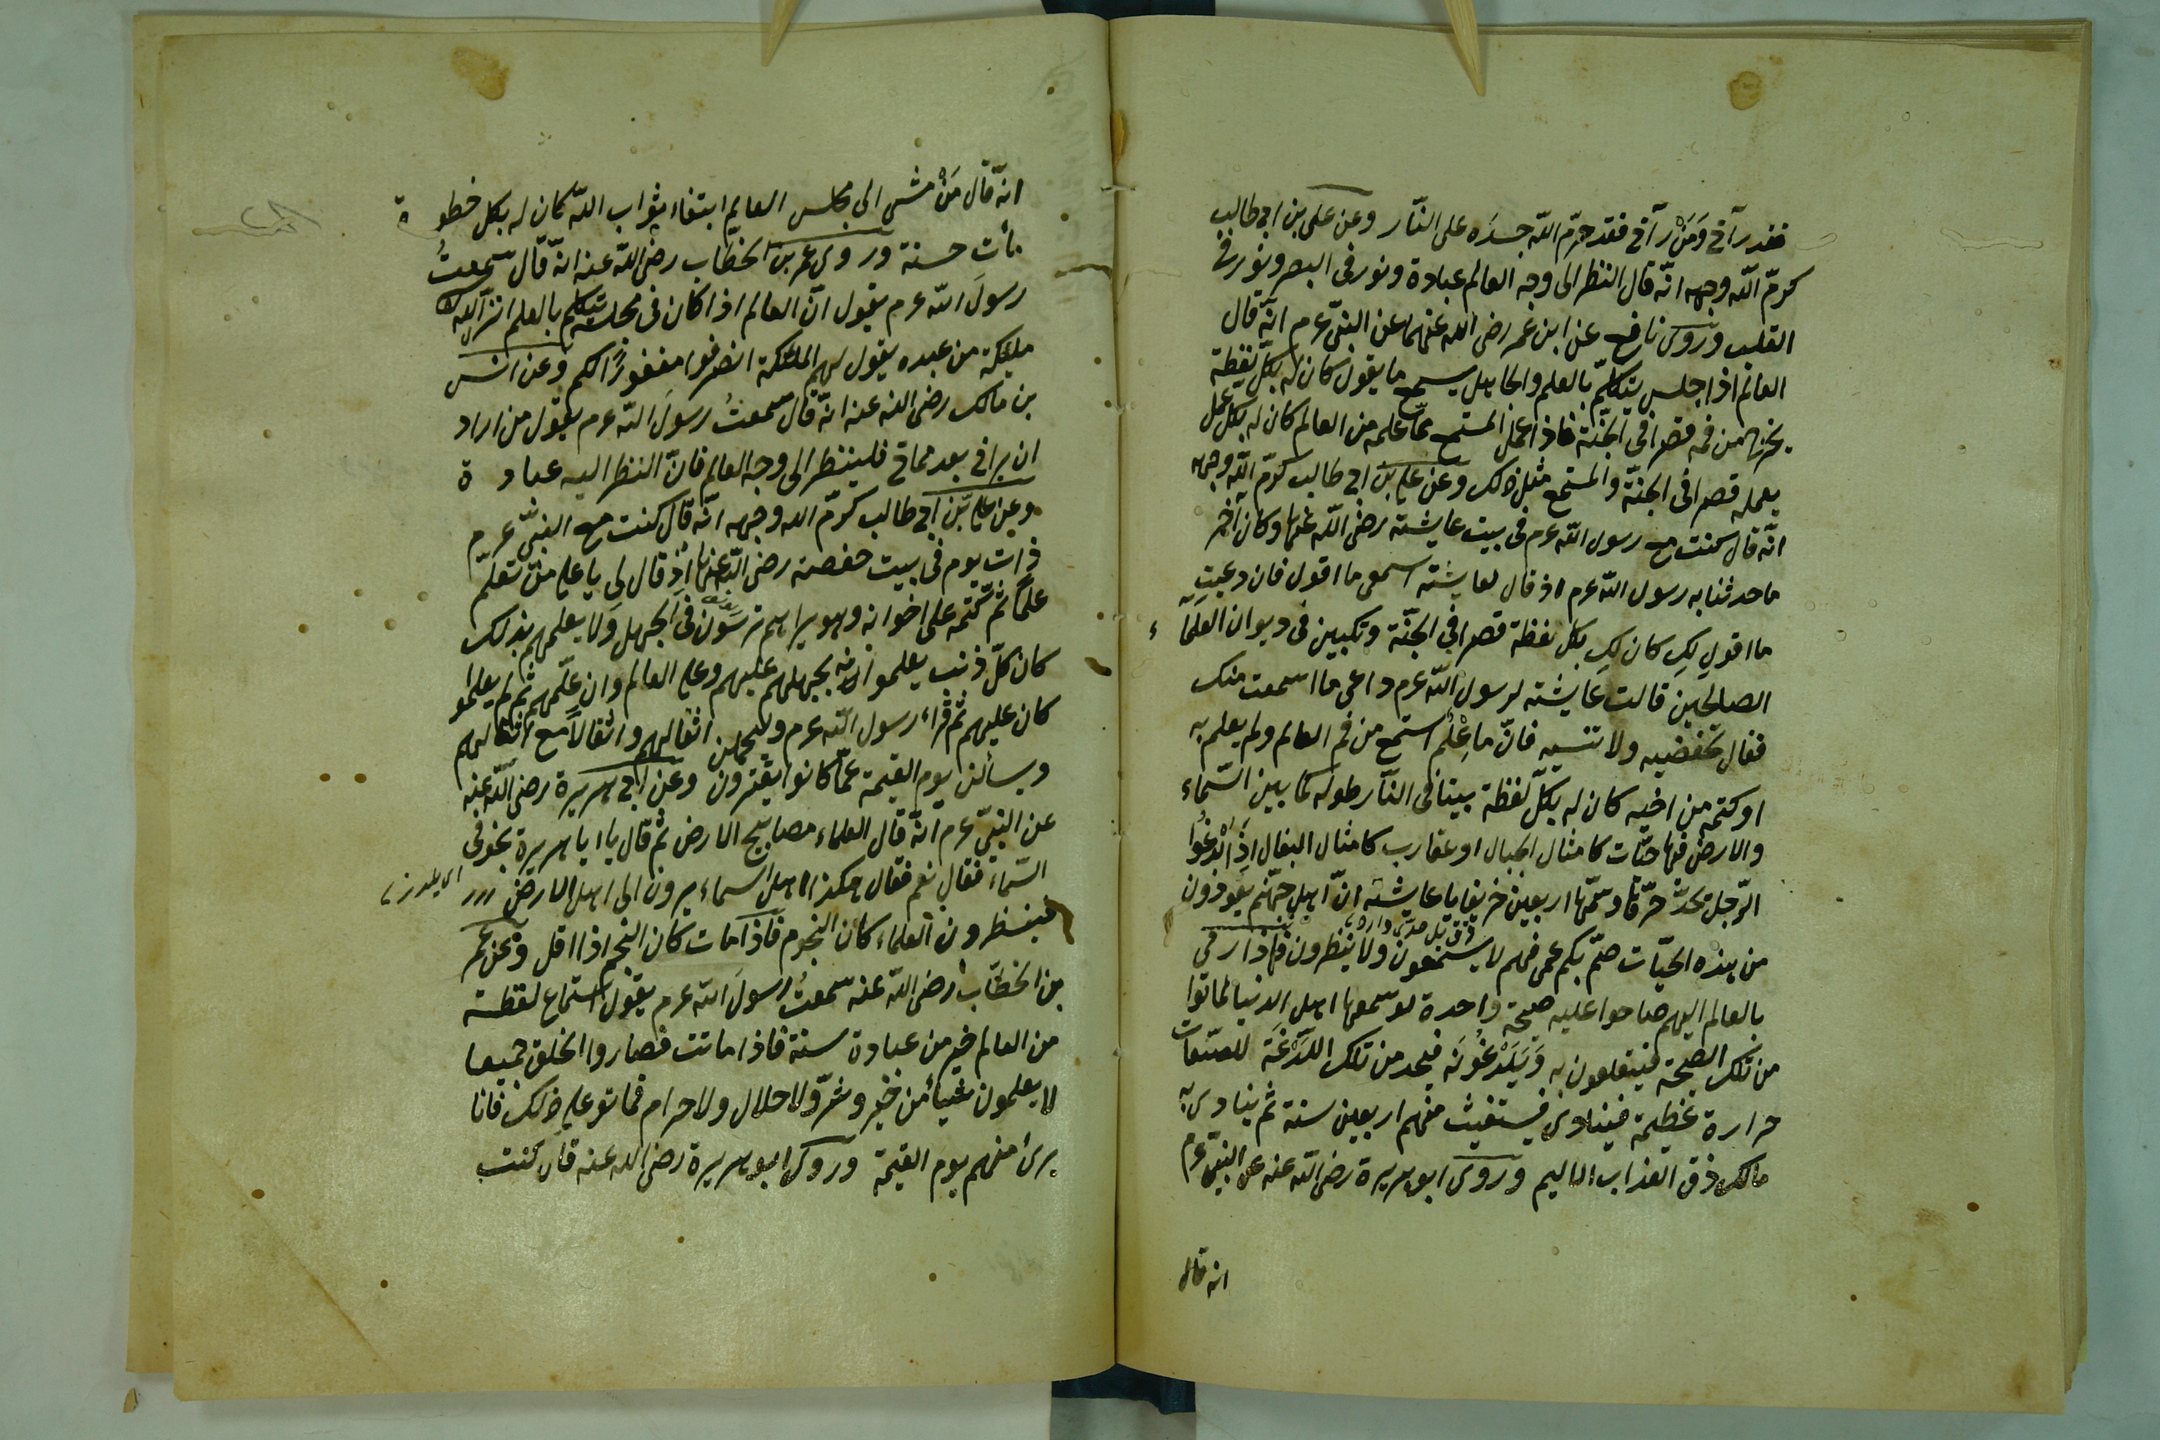 فقد رآني وَمَنْ رآني فقد حرّم اللّه جسدَه على النّار وعن على بن ابى طالب
كرّم اللّه وجهه انّه قال النظر الى وجه العالم عبادة ونور فى البصر ونور فى
القلب وروى نافع عن ابن عمر رضى اللّه عنهما عن النبىّ عرم انّه قال
العالم اذا جلس يتكلّم بالعلم والجاهل يسمع ما يقول كان له بكلّ لفظة
يخرج من فمه قصرا فى الجنّة فاذا عمل المستمع ممّا علمه من العالم كان له بكلّ عمل
يعمله قصرا فى الجنّة والمستمع مثل ذلك وعن على بن ابى طالب كرّم اللّه وجهه
انّه قال كنت مع رسول اللّه عرم فى بيت عايشته رضى اللّه عنها وكان آخر
ما حدثنا به رسول اللّه عرم اذ قال لعايشته اسمعى ما اقول فان وعيتِ
ما اقول لِك كان لكِ بكل لفظة قصرا فى الجنّة وتكبين فى ديوان العلماء
الصالحين قالت عايشته لرسول اللّه عرم داعى ما اسمعت منك
فقال تحفضيه ولا تنسيه فانّ ما عِلْم استمع من فم العالم ولم يعلم به
او كتمه من اخيه كان له بكلّ لفظة بيتا فى النّار طوله كما بين السّماء
والارض فيها حيّات كامثال الجبال او عقارب كامثال البغال اِذَا لْدغُوا
الرّجل يحدّ حرّها وسمّها اربعين خريفا يا عايشته انّ اهل جهنّم يعوذون
من هذه الحيّات صمّ بكم عمى فهم لا يسمعون ولا ينظرون فاذا رمى
بالعالم اليهم صاحوا عليه صيحة واحدة لو سمعها اهل الدنيا لماتوا
من تلك الصيحة فيتعلقون به وَيَلْدغُونَه فيجد من تلك اللَّدْغَة
حرارة عظيمة فينادى فيستغيث منهم اربعين سنة ثم ينادى به
مالك ذق العذاب الاليم وروى ابو هريرة رضى اللّه عنه عن النبىّ عرم
انه قال
انّه قال مَنْ مشى الى مجلس العالم ابتغاء ثواب اللّه كان له بكل خطوة
مأت حسنة وروى عمر بن الخطاب رضى اللّه عنه انّه قال سمعتُ
رسولَ اللّه عرم يقول انّ العالم اذا كان فى مجلسه يتكلم بالعلم انزل اللّه
ملئكة من عبده يقول لهم الملئكة انصرفوا مغفورًا لكم وعن انس
بن مالك رضى اللّه عنه انّه قال سمعتُ رسولَ اللّه عرم يقول من اراد
ان يرانى بعد مماتى فلينظر الى وجه العالم فانّ النظر اليه عبادة
وعن على بن ابى طالب كرّم اللّه وجهه انّه قال كنت مع النبىّ عرم
ذات يوم فى بيت حفصة رضى اللّه عنها اذ قال لى يا على من تعلّم
علما ثمّ كتمه على اخوانه وهو يراهم فى الجهل ولا يعلمهم بذلك
كان كلّ ذنب يعلموا بجهلهم عليهم وعلى العالم وان علّمهم ثم لم يعلموا
كان عليهم ثم قراء رسول اللّه عرم وليحملن اثقالهم واثقالا مع اثقالهم
ويسألن يوم القيمة عمّا كانوا يفترون وعن ابى هريرة رضى اللّه عنه
عن النبىّ عرم انّه قال العلماء مصابيح الارض ثم قال يا ابا هريرة نجوم فى
السّماء فقال نعم فقال هكذا اهل السماء يرون الى اهل الارض
فينظرون العلماء كان النجوم فاذا مات كان النجم اذا افل وعن عمر
بن الخطّاب رضى اللّه عنه سمعتُ رسولَ اللّه عرم يقول استماع لفظة
من العالم خير من عبادة سنة فاذا ماتت فصاروا الخلق جميعا
لا يعلمون شيأ من خير وشرّ ولا حلال ولا حرام فماتو على ذلك فانا
برئ منهم يوم القيمة وروى ابو هريرة رضى اللّه عنه قال كنت